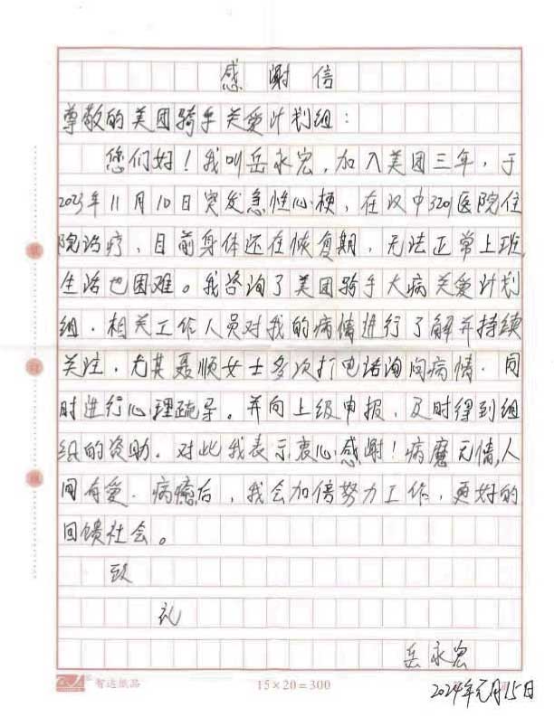 感谢信
尊敬的美团骑手关爱计划组：
您们好！我叫岳永宏，加入美团三年，于
2023年11月10日突发急性心梗，在汉中3201医院住
院治疗，目前身体还在恢复期，无法正常上班，
生活也困难。我咨询了美团骑手大病关爱计划
组．相关工作人员对我的病情进行了解并持续
关注．尤其聂顺女士多次打电话询问病情．同
时进行心理疏导。并向上级申报，及时得到组
织的资助．对此我表示衷心感谢！病魔无情，人
间有爱．病癒后，我会加倍努力工作，更好的
回馈社会。
致
礼
岳永宏
2024年元月15日
15×20=300